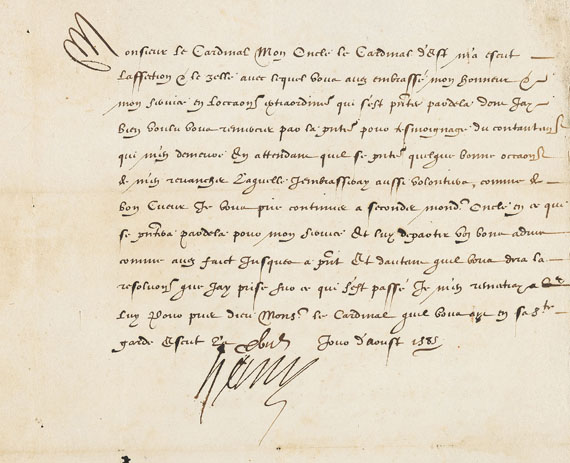 Monsieur le Cardinal Mon Oncle le Cardinal d'Est m'a escrit
Laffection & le zelle avec lequel vous avez embrassé mon honneur &
mon service en loccasion extraordinre qui s'est pnte pardela dont Jay
bien voulu vous remercier par la pnte pour tesmoignage du contantemt
qui m'en demeure En attendant quil se pnte quelque bonne occaon
de m'en revancher Laquelle Jembrasseray aussi volontiers, comme de
bon Cueur Je vous prie continuer a seconder mond. Oncle en ce qui
se pntera pardela pour mon service Et luy departir voz bons advis
comme avez faict Jusques a pnt Et dautant quil vous dira la
resolution que Jay prise sur ce qui s'est passé Je m'en remettray a
luy Pour prier dieu Monsr le Cardinal quil vous ayt en sa ste
garde Escrit Jour d'Aoust 1585
Henry